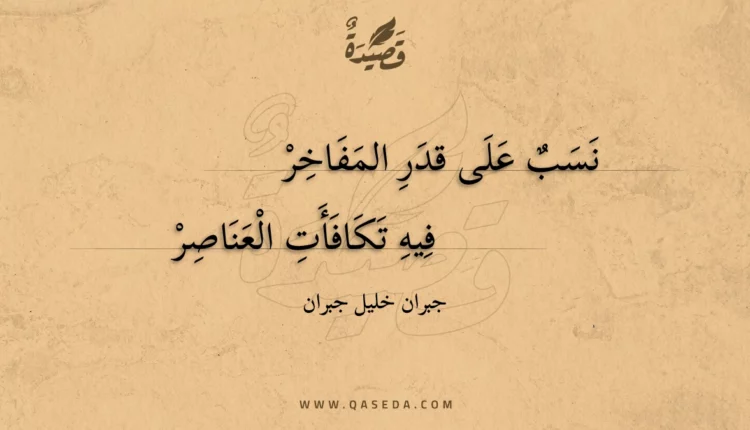 قَصِيْدَةٌ
نَسَبٌ عَلَى قدَرِ المَفَاخِرْ
فِيهِ تَكَافَأَتِ الْعَنَاصِرْ
جبران خليل جبران
WWW.QASEDA.COM